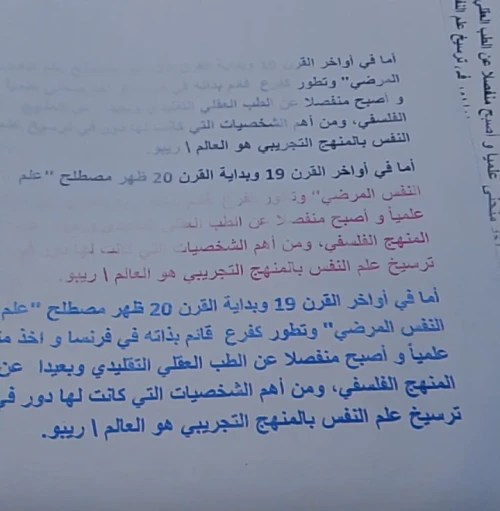 أما في أواخر القرن 19 وبداية القرن
المرضي" وتطور كفرع قائم بذاته في
و أصبح منفصلا عن الطب العقلي
الفلسفي، ومن أهم الشخصيات التي كانت لها دور في ترسيخ
النفس بالمنهج التجريبي هو العالم \ ريبو.
أما في أواخر القرن 19 وبداية القرن 20 ظهر مصطلح "علم
النفس المرضي" وتطور كفرع
علمياً و أصبح منفصلا عن الطب العقلي
المنهج الفلسفي، ومن أهم الشخصيات التي كانت لها دور في
ترسيخ علم النفس بالمنهج التجريبي هو العالم \ ريبو.
أما في أواخر القرن 19 وبداية القرن 20 ظهر مصطلح "علم
النفس المرضي" وتطور كفرع قائم بذاته في فرنسا و اخذ
علمياً و أصبح منفصلا عن الطب العقلي التقليدي وبعيدا عن
المنهج الفلسفي، ومن أهم الشخصيات التي كانت لها دور في
ترسيخ علم النفس بالمنهج التجريبي هو العالم \ ريبو.
منفصلا عن الطب العقلي
علمياً و أصبح منفصلا عن
ترسيخ علم